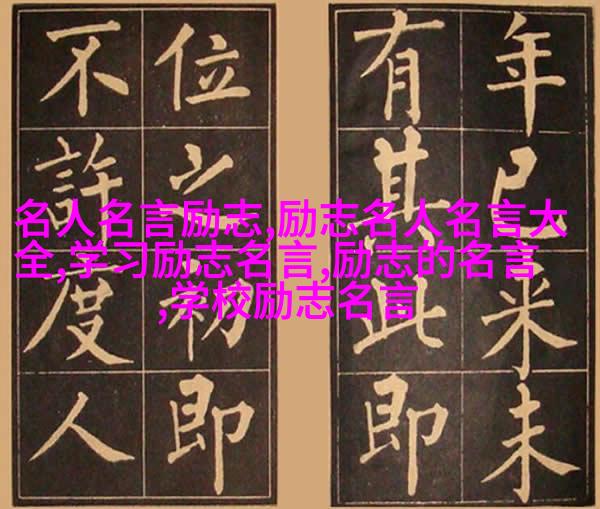 年已米未
有其此即
位之初即
不許度人
名人名言励志,励志名人名言大
全,学习励志名言,励志的名言
,学校励志名言